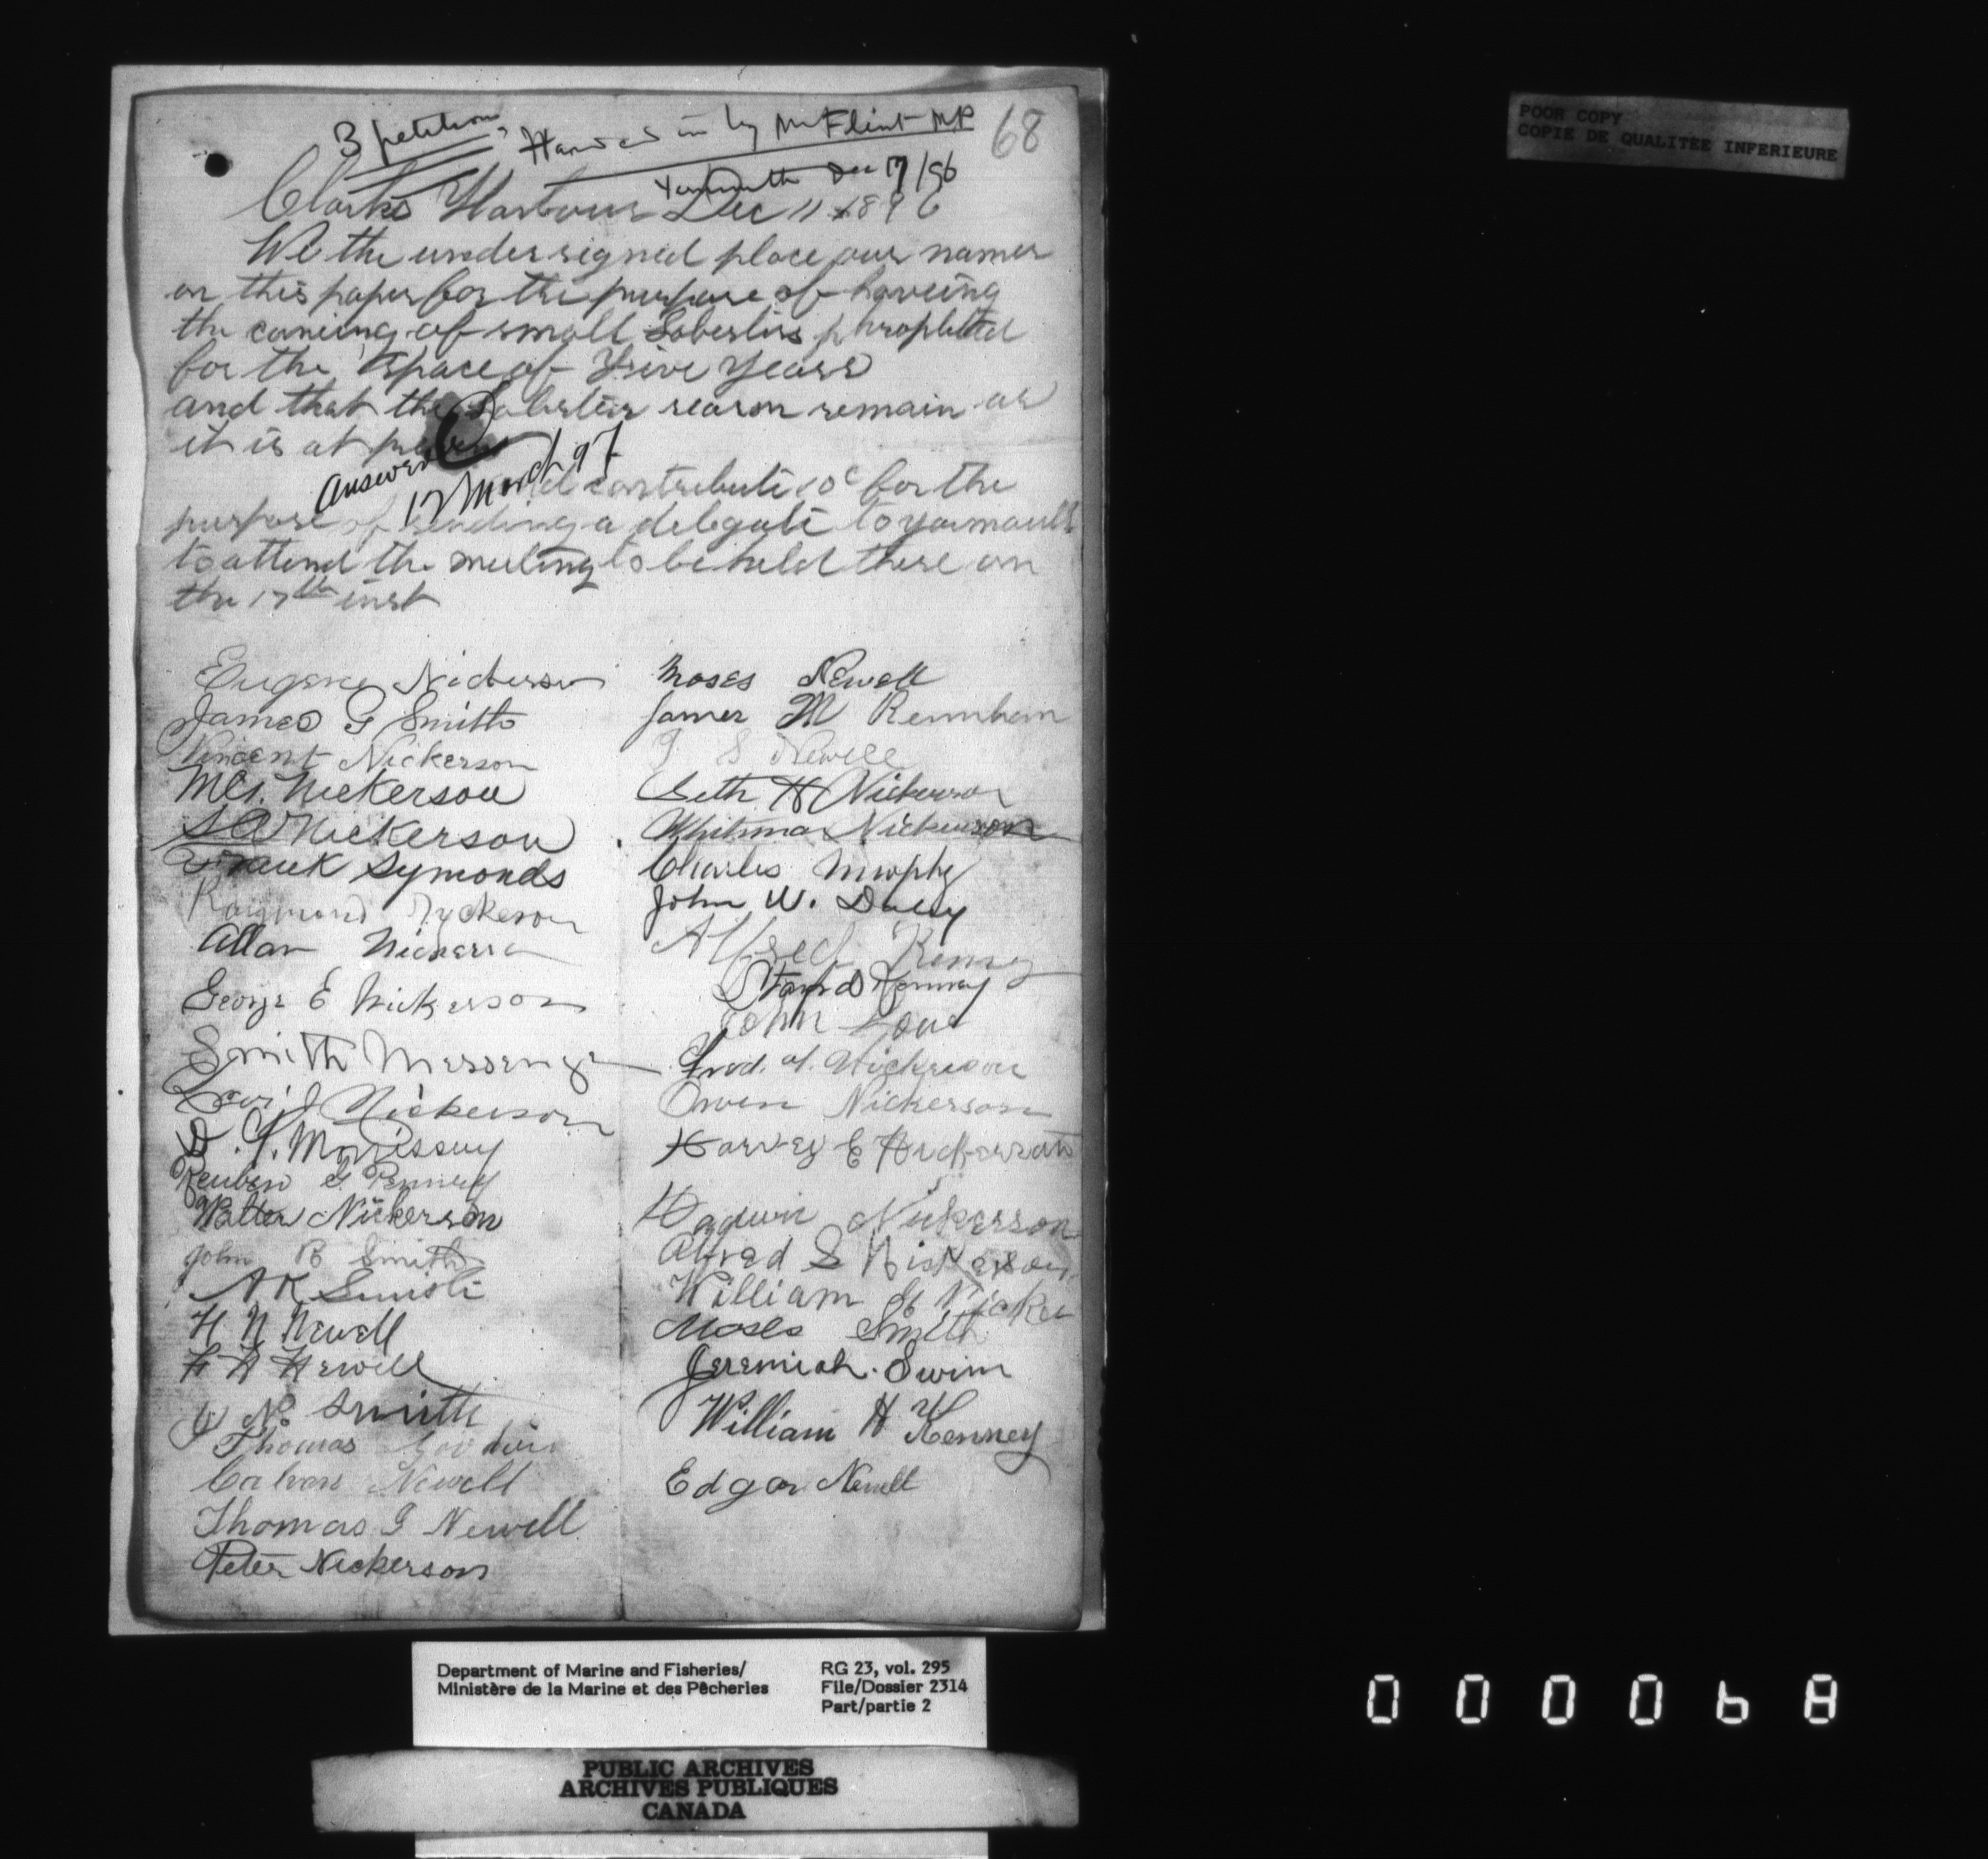 3 petitions, Handed in by Mr Flint MP
68
Yarmouth Dec 17/96
Clarks Harbour Dec 11 1896
We the undersigned place our names
on this paper for the purpose of haveing
the caning of small Lobesters
for the space of Five years
and that the Lobster season remain as
it is at
Answered
17 March 97
contribute 10c for the
purpose of sending a delegate to yarmouth
to attend the meeting to be held there on
the 17th inst
Eugene Nickerson
James G Smith
Vincent Nickerson
Nickerson
Nickerson
Frank Symonds
Raymond Nickerson
Allan Nickerson
George E Nickerson
Smith Messenger
Nickerson
D.
Reuben
Walter Nickerson
John B Smith
A K Smith
H N Newell
Newell
Smith
Thomas
Calvin Newell
Thomas G Newell
Peter Nickerson
Moses Newell
James M
S Newell
Seth H Nickerson
Whitman Nickerson
Charles Murphy
John W.
Alfred Kenney
Kenney
John
Nickerson
Owen Nickerson
Harvey E Nickerson
Nickerson
Alfred S Nickerson
William
Moses Smith
Jeremiah. Swim
William H Kenney
Edgar Newell
POOR COPY
COPIE DE QUALITÉE INFERIEURE
Department of Marine and Fisheries/
Ministère de la Marine et des Pêcheries
RG 23, vol. 295
File/Dossier 2314
Part/partie 2
PUBLIC ARCHIVES
ARCHIVES PUBLIQUES
CANADA
000068